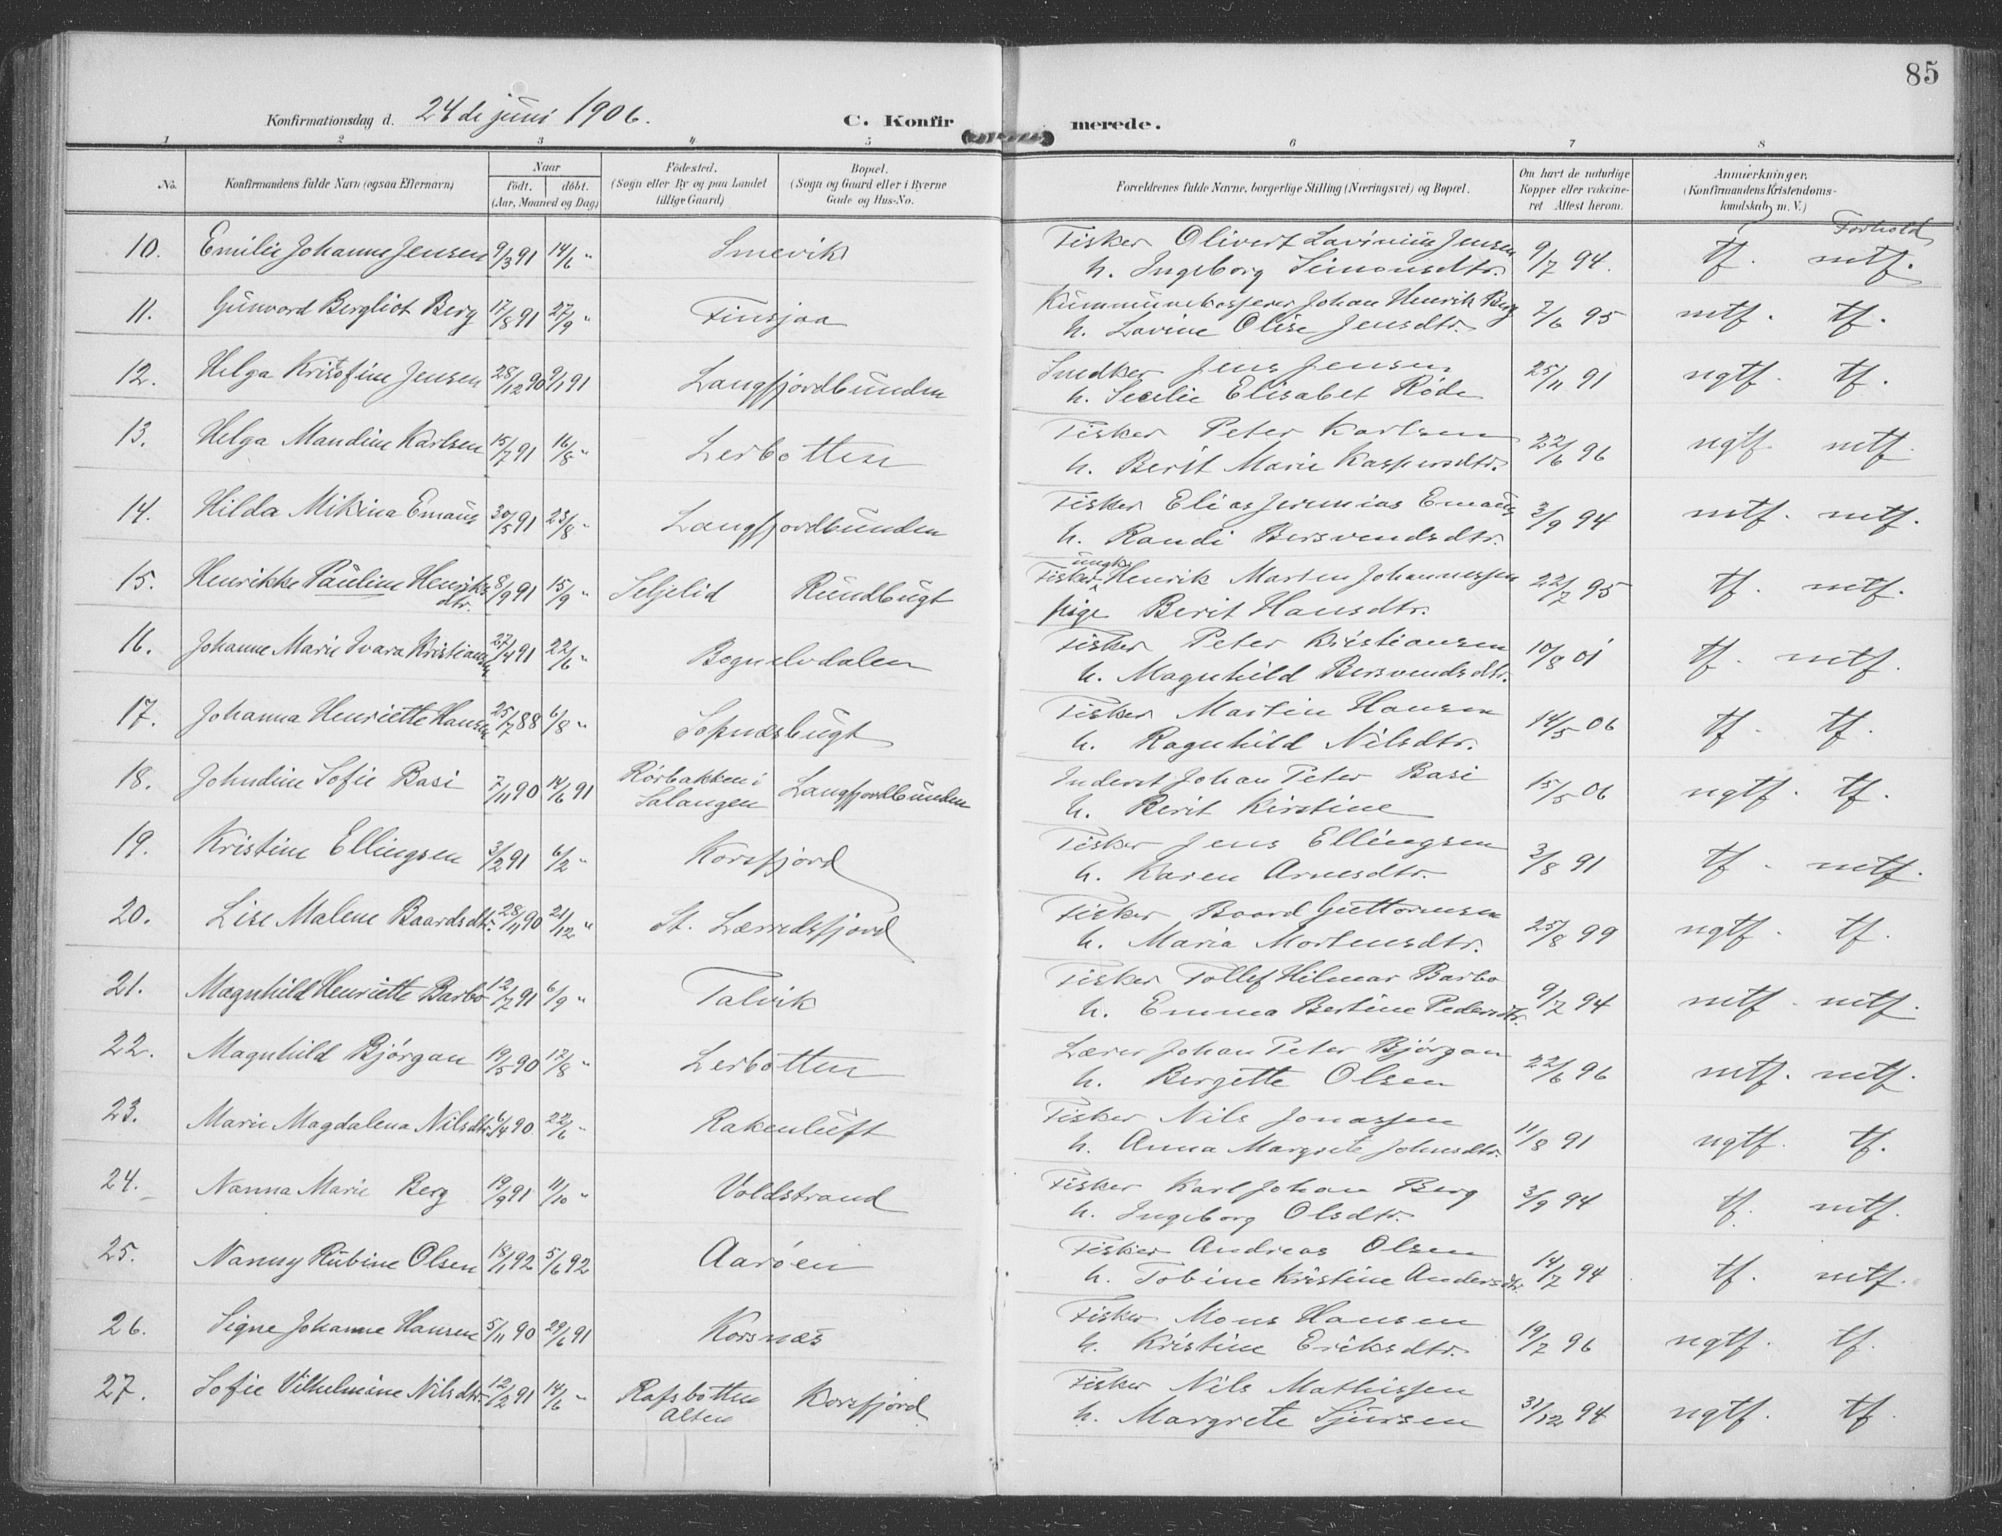 85
Konfirmationsdag d. 24de juni 1906. C. Konfirmerede.
1 2 3 4 5 6 7 8
No. Konfirmandens fulde Navn (ogsaa Efternavn) Naar født. døbt. (Aar, Maaned og Dag) Fødested. (Sogn eller By og paa Landet tillige Gaard) Bopæl. (Sogn og Gaard eller i Byerne Gade og Hus-No. Forældrenes fulde Navne, borgerlige Stilling (Næringsvei) og Bopæl. Om havt de naturlige Kopper eller vakcineret Attest herom. Anmærkninger. (Konfirmandens Kristendomskundskab m. V.) Forhold
10. Emilie Johanne Jensen 9/3 91 14/6 " Smevik Fisker Olivert Lavinius Jensen 9/7 94. tf. mtf.
h. Ingeborg Simonsdtr.
11. Gunvord Bergliot Berg 17/8 91 27/9 " Finsjaa Kummunekasserer Johan Henrik Berg 7/6 95 mtf. tf.
h. Lovine Olise Jensdtr.
12. Helga Kristofine Jensen 28/12 90 9/1 91 Langfjordbunden Snedker Jens Jensen 25/11 91 ngtf. tf.
h. Secilie Elisabet Røde
13. Helga Mandine Karlsen 15/7 91 16/8 " Lerbotten Fisker Peter Karlsen 22/6 96 ngtf. mtf.
h. Berit Marie Kaspersdtr.
14. Hilda Mikina Emaus 30/5 91 23/8 " Langfjordbunden Fisker Elias Jeremias Emaus 3/9 94 mtf. mtf.
h. Randi Bersvendsdtr.
15. Henrikke Pauline Henriksdtr. 8/9 91 15/9 " Seljelid Rundbugt Fisker ungk. Henrik Marten Johannessen 22/7 95 tf. mtf.
pige Berit Hansdtr.
16. Johanne Marie Ivara Kristiansen 27/4 91 22/6 " Bognelvdalen Fisker Peter Kristiansen 10/8 01 tf. mtf.
h. Magnhild Bersvendsdtr.
17. Johanna Henriette Hansen 25/7 88 6/8 " Sopnæsbugt Fisker Martin Hansen 14/5 06 tf. tf.
h. Ragnhild Nilsdtr.
18. Johndine Sofie Basi 7/11 90 14/6 91 Rørbakken i Salangen Langfjordbunden Inderst Johan Peter Basi 15/5 06 ngtf. tf.
h. Berit Kirstine
19. Kristine Ellingsen 3/2 91 6/2 " Korsfjord Fisker Jens Ellingsen 3/8 91 tf. mtf.
h. Karen Arnesdtr.
20. Lise Malene Baardsdtr. 28/11 90 21/12 " St. Lærredsfjord Fisker Baard Guttormsen 25/8 99 ngtf. tf.
h. Maria Mortensdtr.
21. Magnhild Henriette Barbo 12/7 91 6/9 " Talvik Fisker Tollef Hilmar Barbo 9/7 94 mtf. mtf.
h. Emma Bertine Pedersdtr.
22. Magnhild Bjørgan 19/5 90 12/8 " Lerbotten Lærer Johan Peter Bjørgan 22/6 96 mtf. mtf.
h. Bergette Olsen
23. Marie Magdalena Nilsdtr. 6/4 90 22/6 " Rakenluft Fisker Nils Jonassen 11/8 91 ngtf. tf.
h. Anna Margrete Johnsdtr.
24. Nanna Marie Berg 19/9 91 11/10 " Voldstrand Fisker Karl Johan Berg 3/9 94 tf. mtf.
h. Ingeborg Olsdtr.
25. Nanny Rubine Olsen 18/1 92 5/6 92 Aarøen Fisker Andreas Olsen 14/7 94 tf. mtf.
h. Tobine Kristine Andersdtr.
26. Signe Johanne Hansen 5/11 90 29/6 91 Korsnæs Fisker Mons Hansen 19/7 96 ngtf. tf.
h. Kristine Eriksdtr.
27. Sofie Vilhelmine Nilsdtr. 12/2 91 14/6 " Rafsbotten Alten Korsfjord Fisker Nils Mathissen 31/12 94 ngtf. tf.
h. Margrete Sjursen